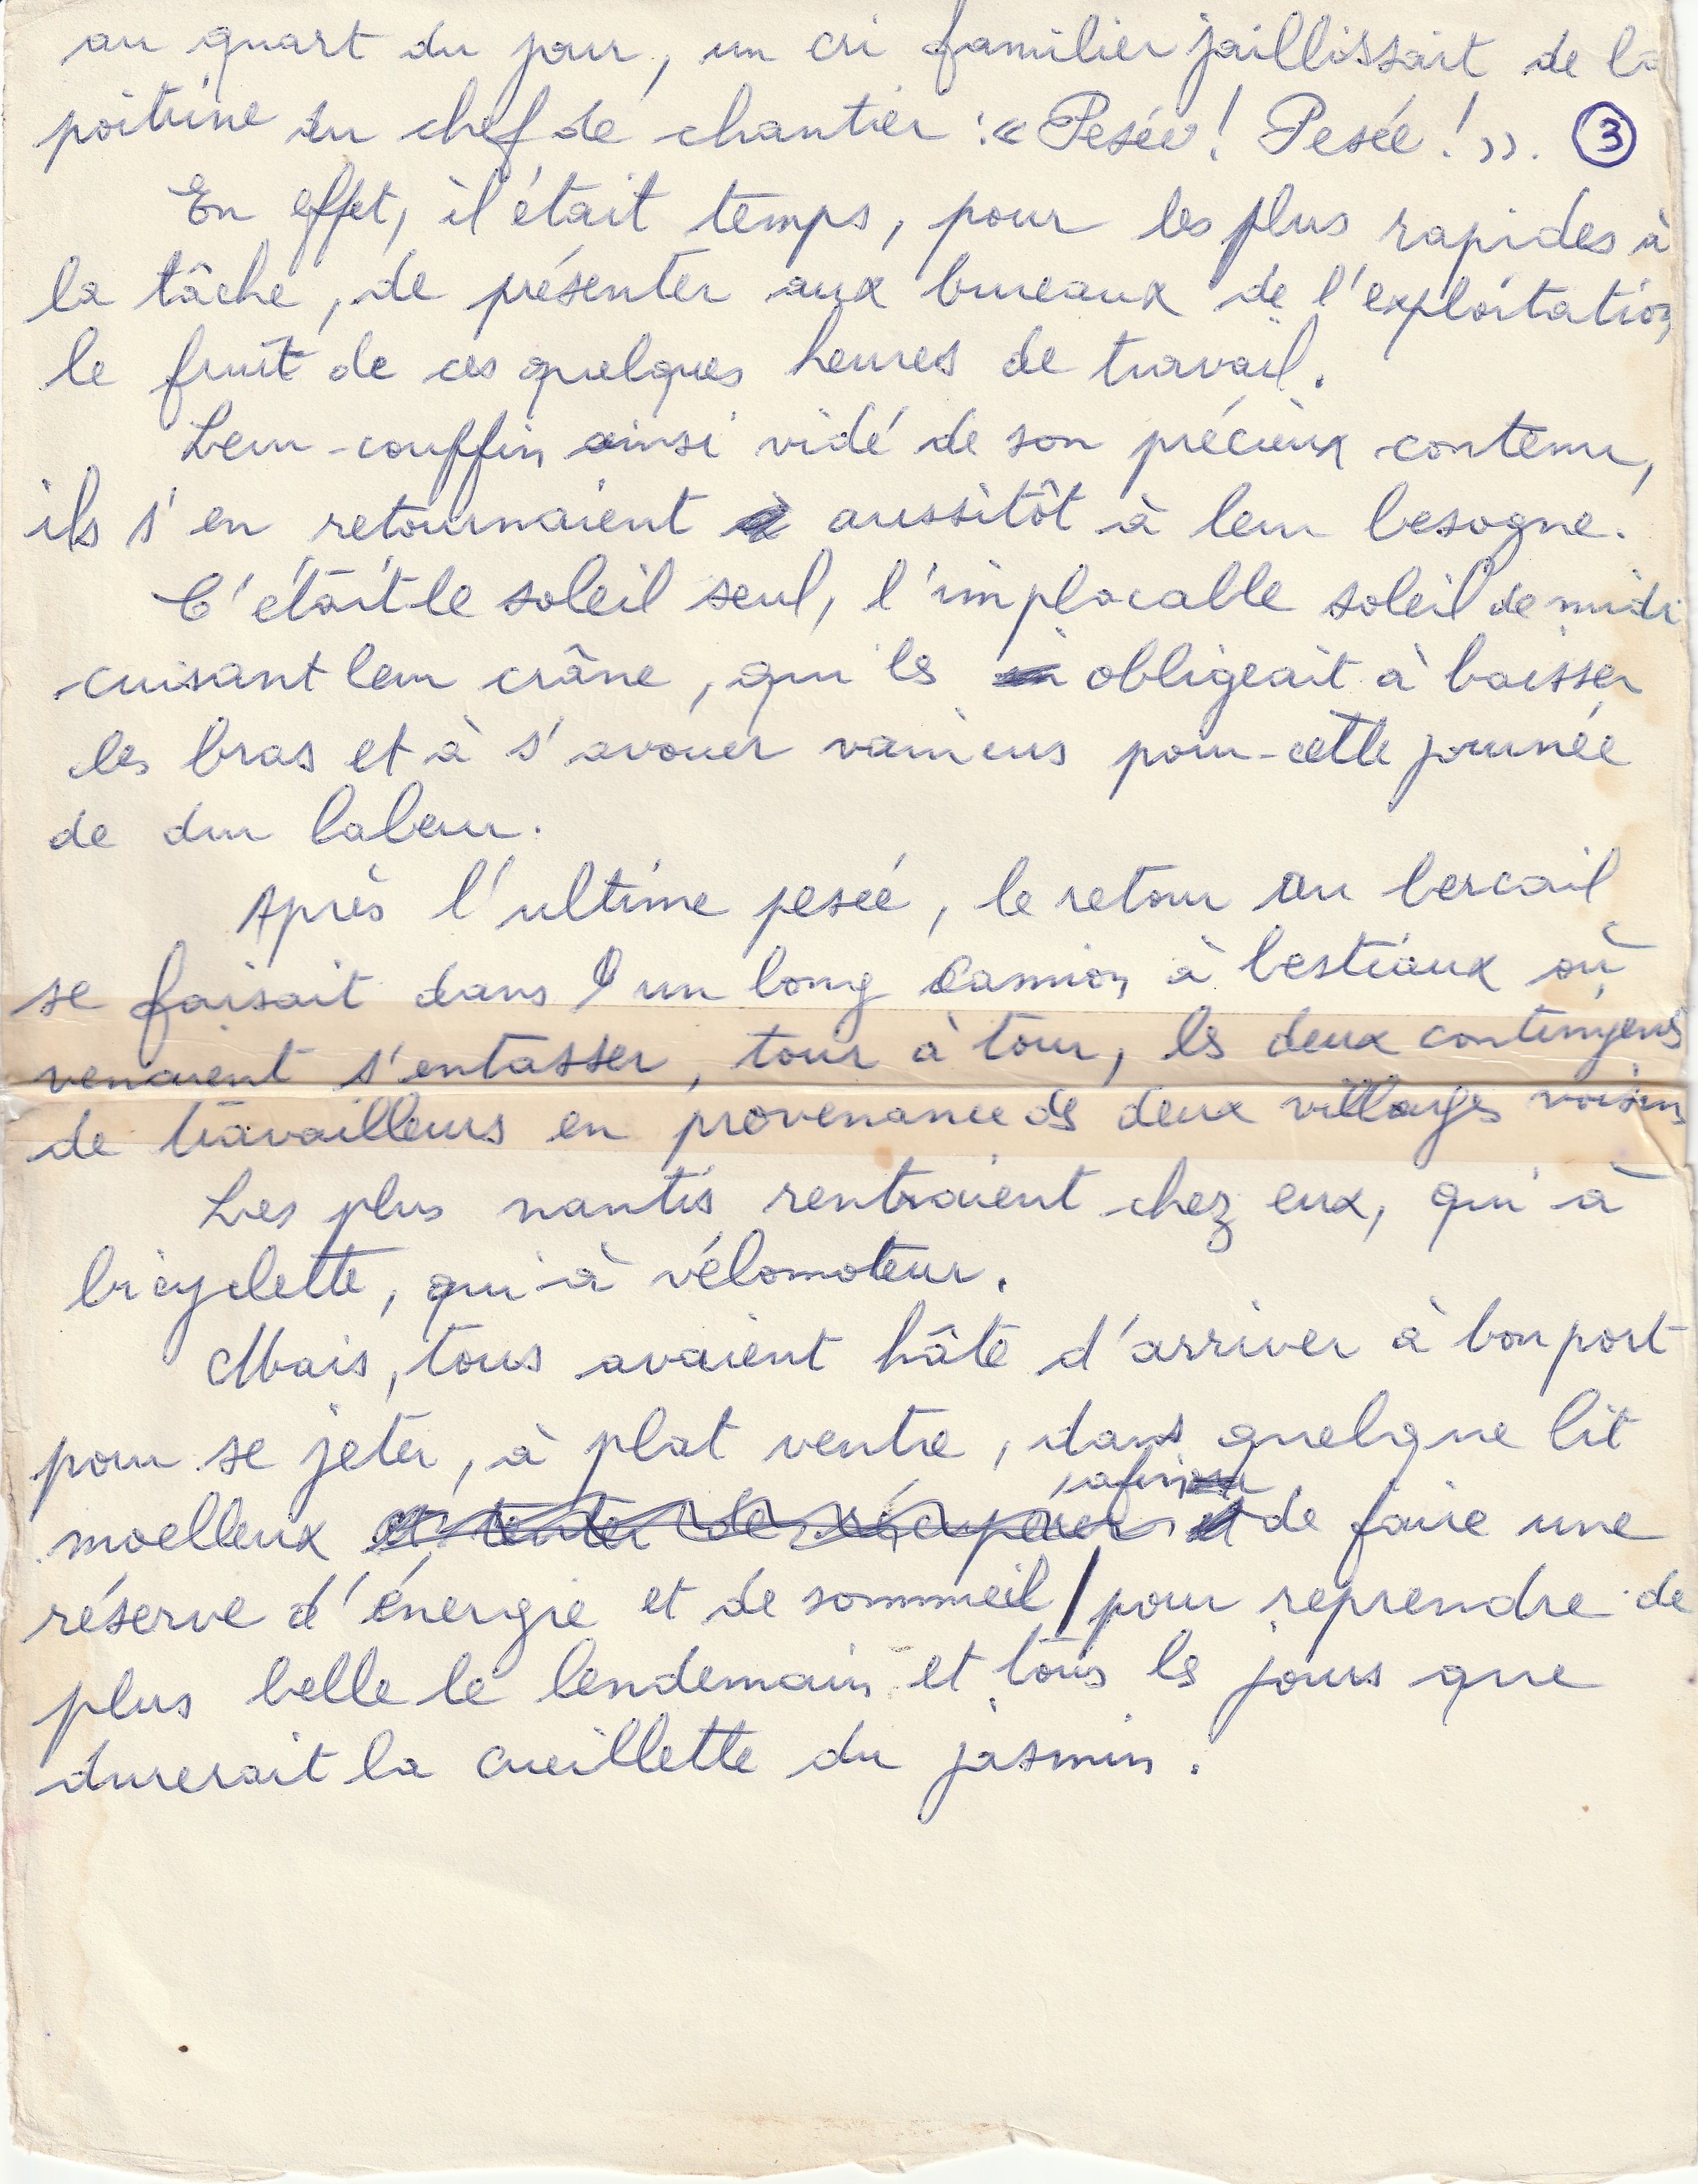 au quart du jour, un cri familier jaillissait de la
poitrine du chef de chantier : « Pesée ! Pesée ! ». 3
En effet, il était temps, pour les plus rapides à
la tâche, de présenter aux bureaux de l'exploitation
le fruit de ces quelques heures de travail.
Leur couffin ainsi vidé de son précieux contenu,
ils s'en retournaient aussitôt à leur besogne.
C'était le soleil seul, l'implacable soleil de midi
cuisant leur crâne, qui les obligeait à baisser
les bras et à s'avouer vaincus pour cette journée
de dur labeur.
Après l'ultime pesée, le retour au bercail
se faisait dans un long camion à bestiaux où
venaient s'entasser, tour à tour, les deux contingents
de travailleurs en provenance des deux villages voisins
Les plus nantis rentraient chez eux, qui à
bicyclette, qui à vélomoteur.
Mais, tous avaient hâte d'arriver à bon port
pour se jeter, à plat ventre, dans quelque lit
, afin
moelleux et tenter de récupérer et de faire une
réserve d'énergie et de sommeil / pour reprendre de
plus belle le lendemain et tous les jours que
durerait la cueillette du jasmin.